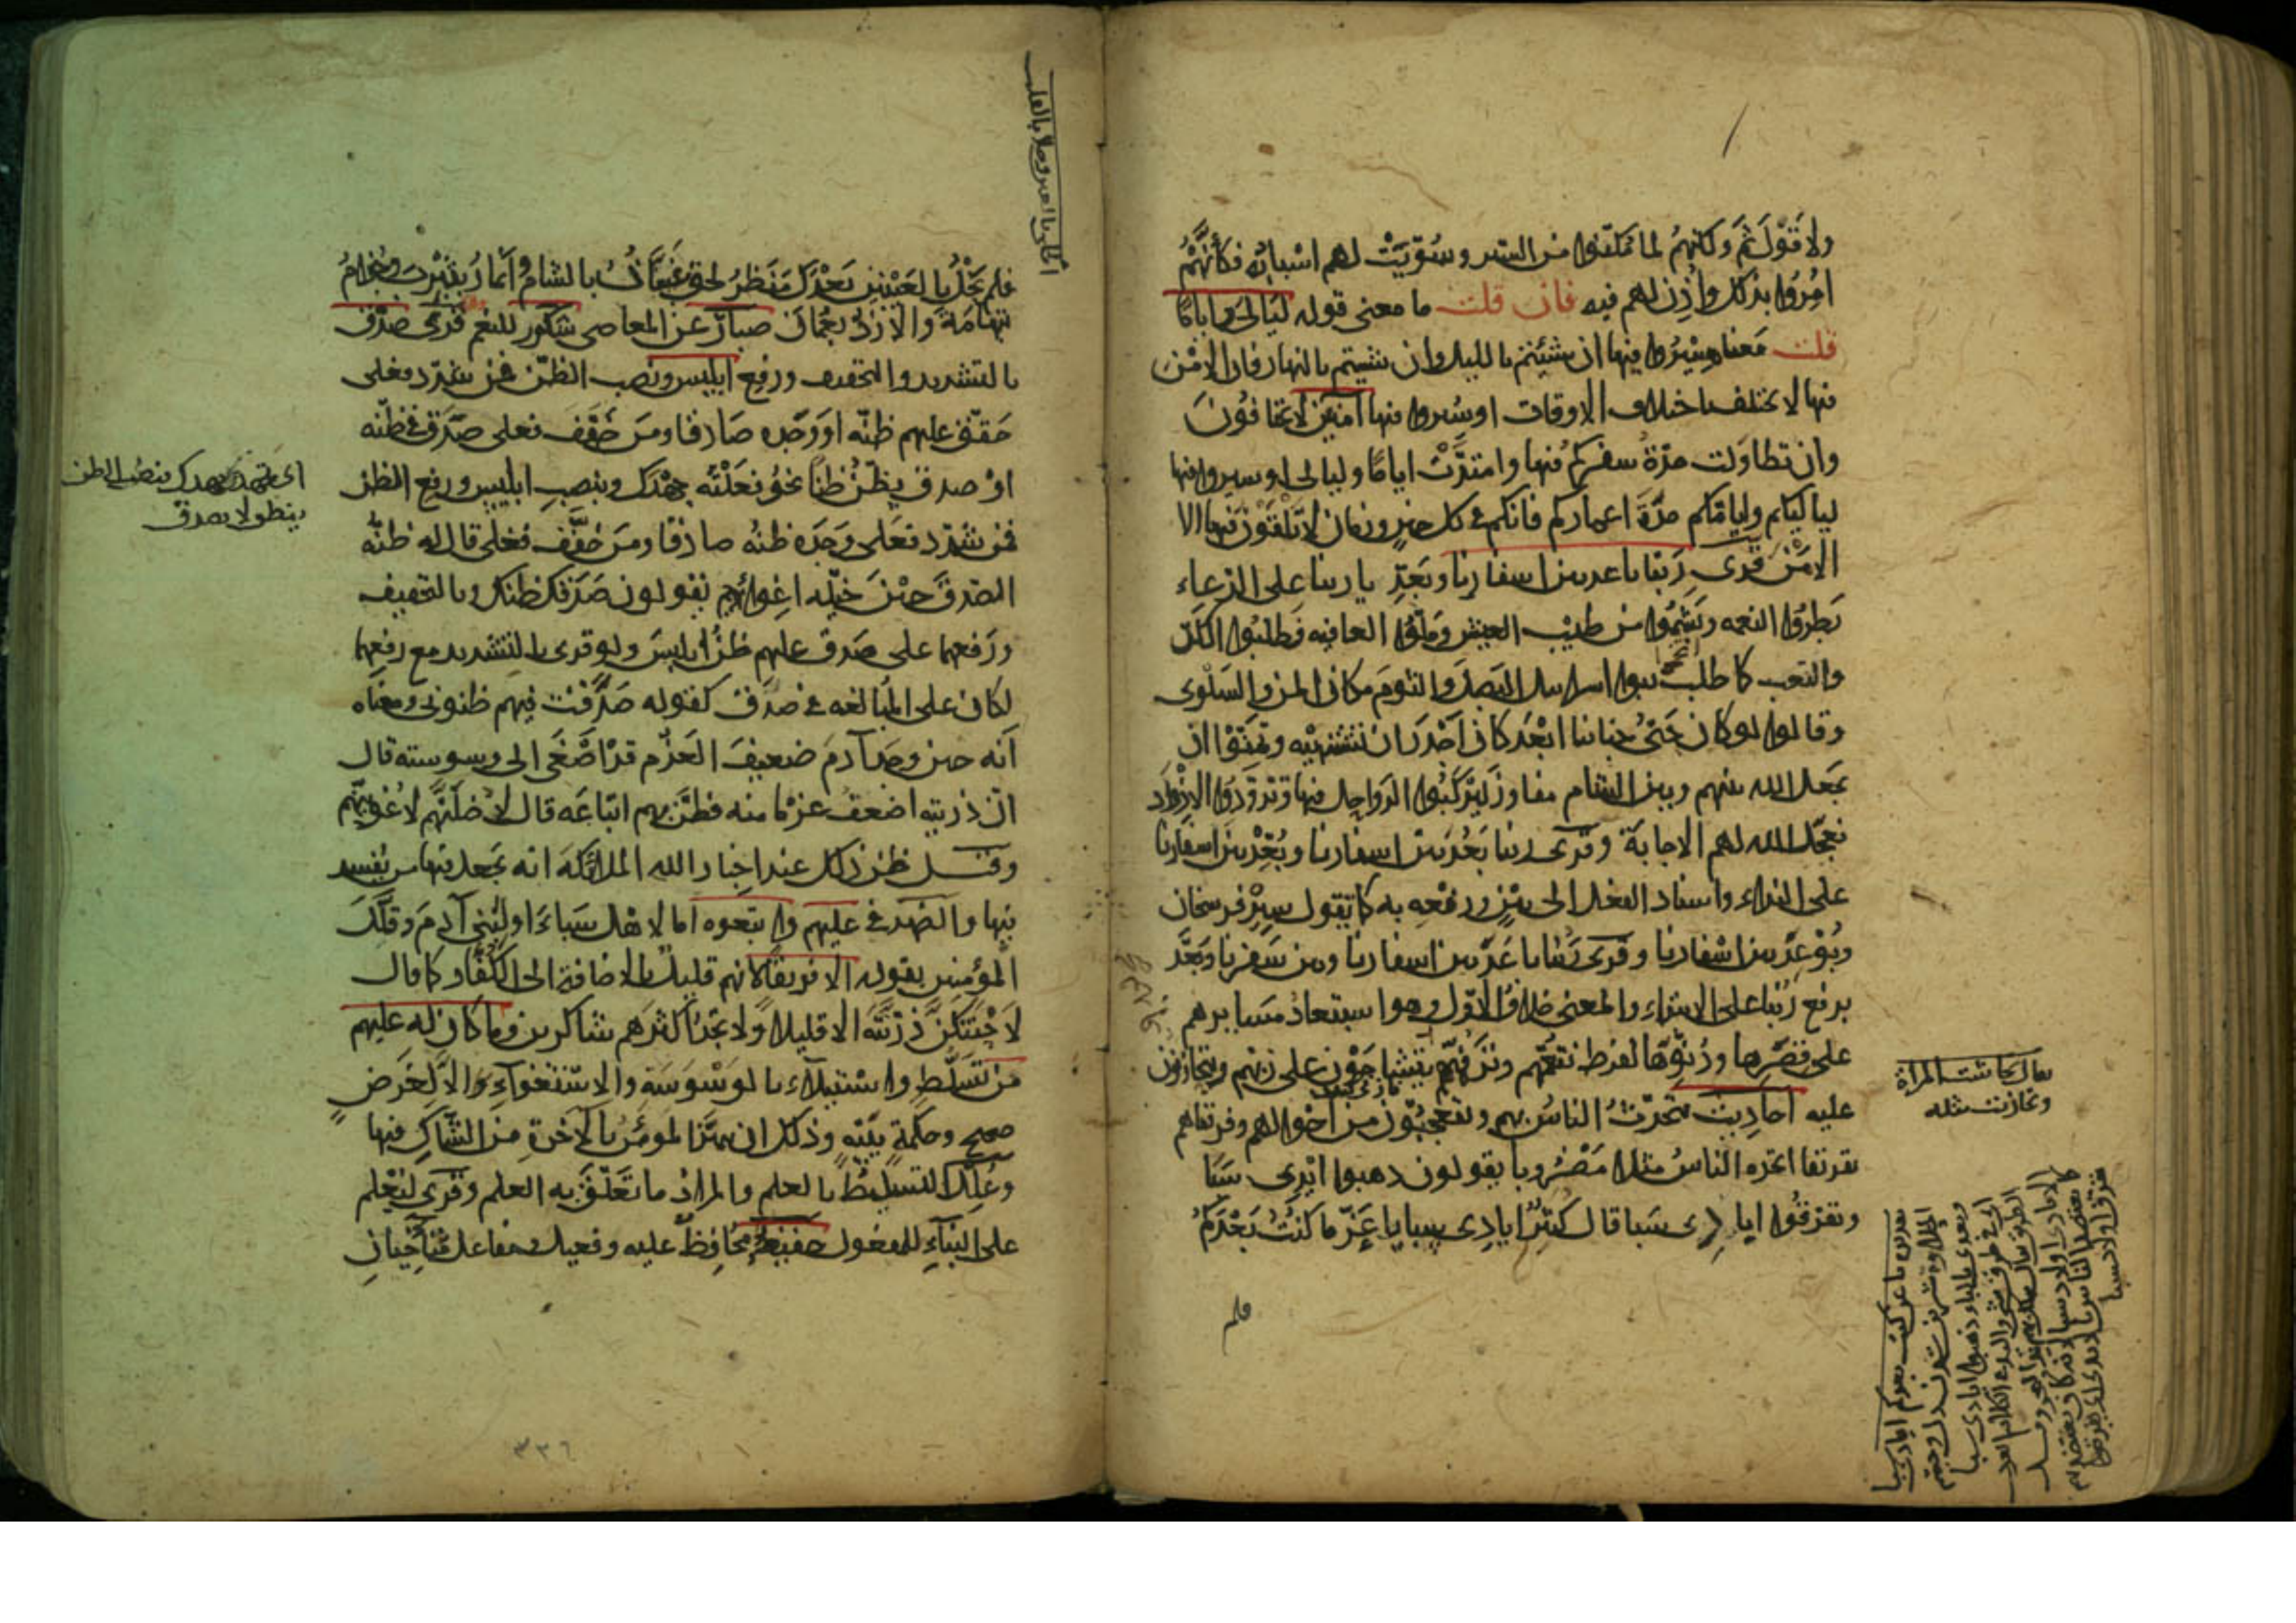 ولا قول ثم ولكنهم لما مكنوا من السير وسويت لهم اسبابه فكأنهم
امروا بذلك واذن لهم فيه فان قلت ما معنى قوله ليالي واياما
قلت معناه سيروا فيها ان شئتم بالليل وان شئتم بالنهار فان الامن
فيها لا يختلف باختلاف الاوقات او سيروا فيها آمنين لا تخافون
وان تطاولت مدة سفركم فيها وامتدت اياما وليالي او سيروا فيها
لياليكم وايامكم مدة اعماركم فانكم في كل حين وزمان لا تلقون فيها الا
الامن قرى ربنا باعد بين اسفارنا وبعد يا ربنا على الدعاء
بطروا النعمه وبشموا من طيب العيش وملوا العافيه فطلبوا الكد
والتعب كما طلب بنوا اسرايل البصل والثوم مكان المن والسلوى
وقالوا لو كان جنى جناننا ابعد كان اجدر ان نشتهيه وتمنوا ان
يجعل الله بينهم وبين الشام مفاوز ليركبوا الرواحل فيها وتزودوا الازواد
فعجل الله لهم الاجابة وقرى ربنا بعد بين اسفارنا وبعد بين اسفارنا
على النداء واسناد الفعل الى بين ورفعه به كما تقول سير فرسخان
وبوعد بين اسفارنا وقرى ربنا باعد بين اسفارنا وبين سفرنا وبعد
برفع ربنا على الابتداء والمعنى خلاف الاول وهو استبعاد مسايرهم
على قصرها ودنوها لفرط تنعمهم وترفههم يتشاجون على ربهم ويتحازنون
عليه احاديث يتحدث الناس بهم ويتعجبون من احوالهم وفرقناهم
تفريقا اتخذه الناس مثلا مضروبا يقولون ذهبوا ايدى سبا
وتفرقوا ايادى سبا قال كثير ايادى سبايا عز ما كنت بعدكم
فلم
يقال تحاشت المراة
وتحازنت مثله
فلم يحل بالعينين بعدك منظر لحق غسان بالشام وانمار بيثرب وجذام
بتهامة والازد بعمان صبار عن المعاصى شكور للنعم قرى صدق
بالتشديد والتخفيف ورفع ابليس ونصب الظن فمن شدد فعلى
حقق عليهم ظنه او وجده صادقا ومن خفف فعلى صدق في ظنه
او صدق يظن ظنا نحو فعلته جهدك وبنصب ابليس ورفع الظن
فمن شدد فعلى وجده ظنه صادقا ومن خفف فعلى قال له ظنه
الصدق حين خيله اغواءهم يقولون صدقك ظنك وبالتخفيف
ورفعهما على صدق عليهم ظن ابليس ولو قرى بالتشديد مع رفعهما
لكان على المبالغه في صدق كقوله صدقت فيهم ظنونى ومعناه
انه حين وجد آدم ضعيف العزم قد اصغى الى وسوسته قال
ان ذريته اضعف عزما منه فظن بهم اتباعه قال لاضلنهم لاغوينهم
وقيل ظن ذلك عند اخبار الله الملائكة انه يجعل فيها من يفسد
فيها والضمير في عليهم واتبعوه اما لاهل سباء او لبنى آدم وقلل
المؤمنين بقوله الا فريقا لانهم قليل بالاضافة الى الكفار كما قال
لاحتنكن ذريته الا قليلا ولا تجد اكثرهم شاكرين وما كان له عليهم
من تسلط واستيلاء بالوسوسة والاستغواء الا لغرض
صحيح وحكمة بينه وذلك ان يتميز المؤمن بالآخرة من الشاك فيها
وعلل التسليط بالعلم والمراد ما تعلق به العلم وقرى ليعلم
على البناء للمفعول حفيظ محافظ عليه وفعيل ومفاعل متآخيان
بفعل لا بصدق
٣٣٦